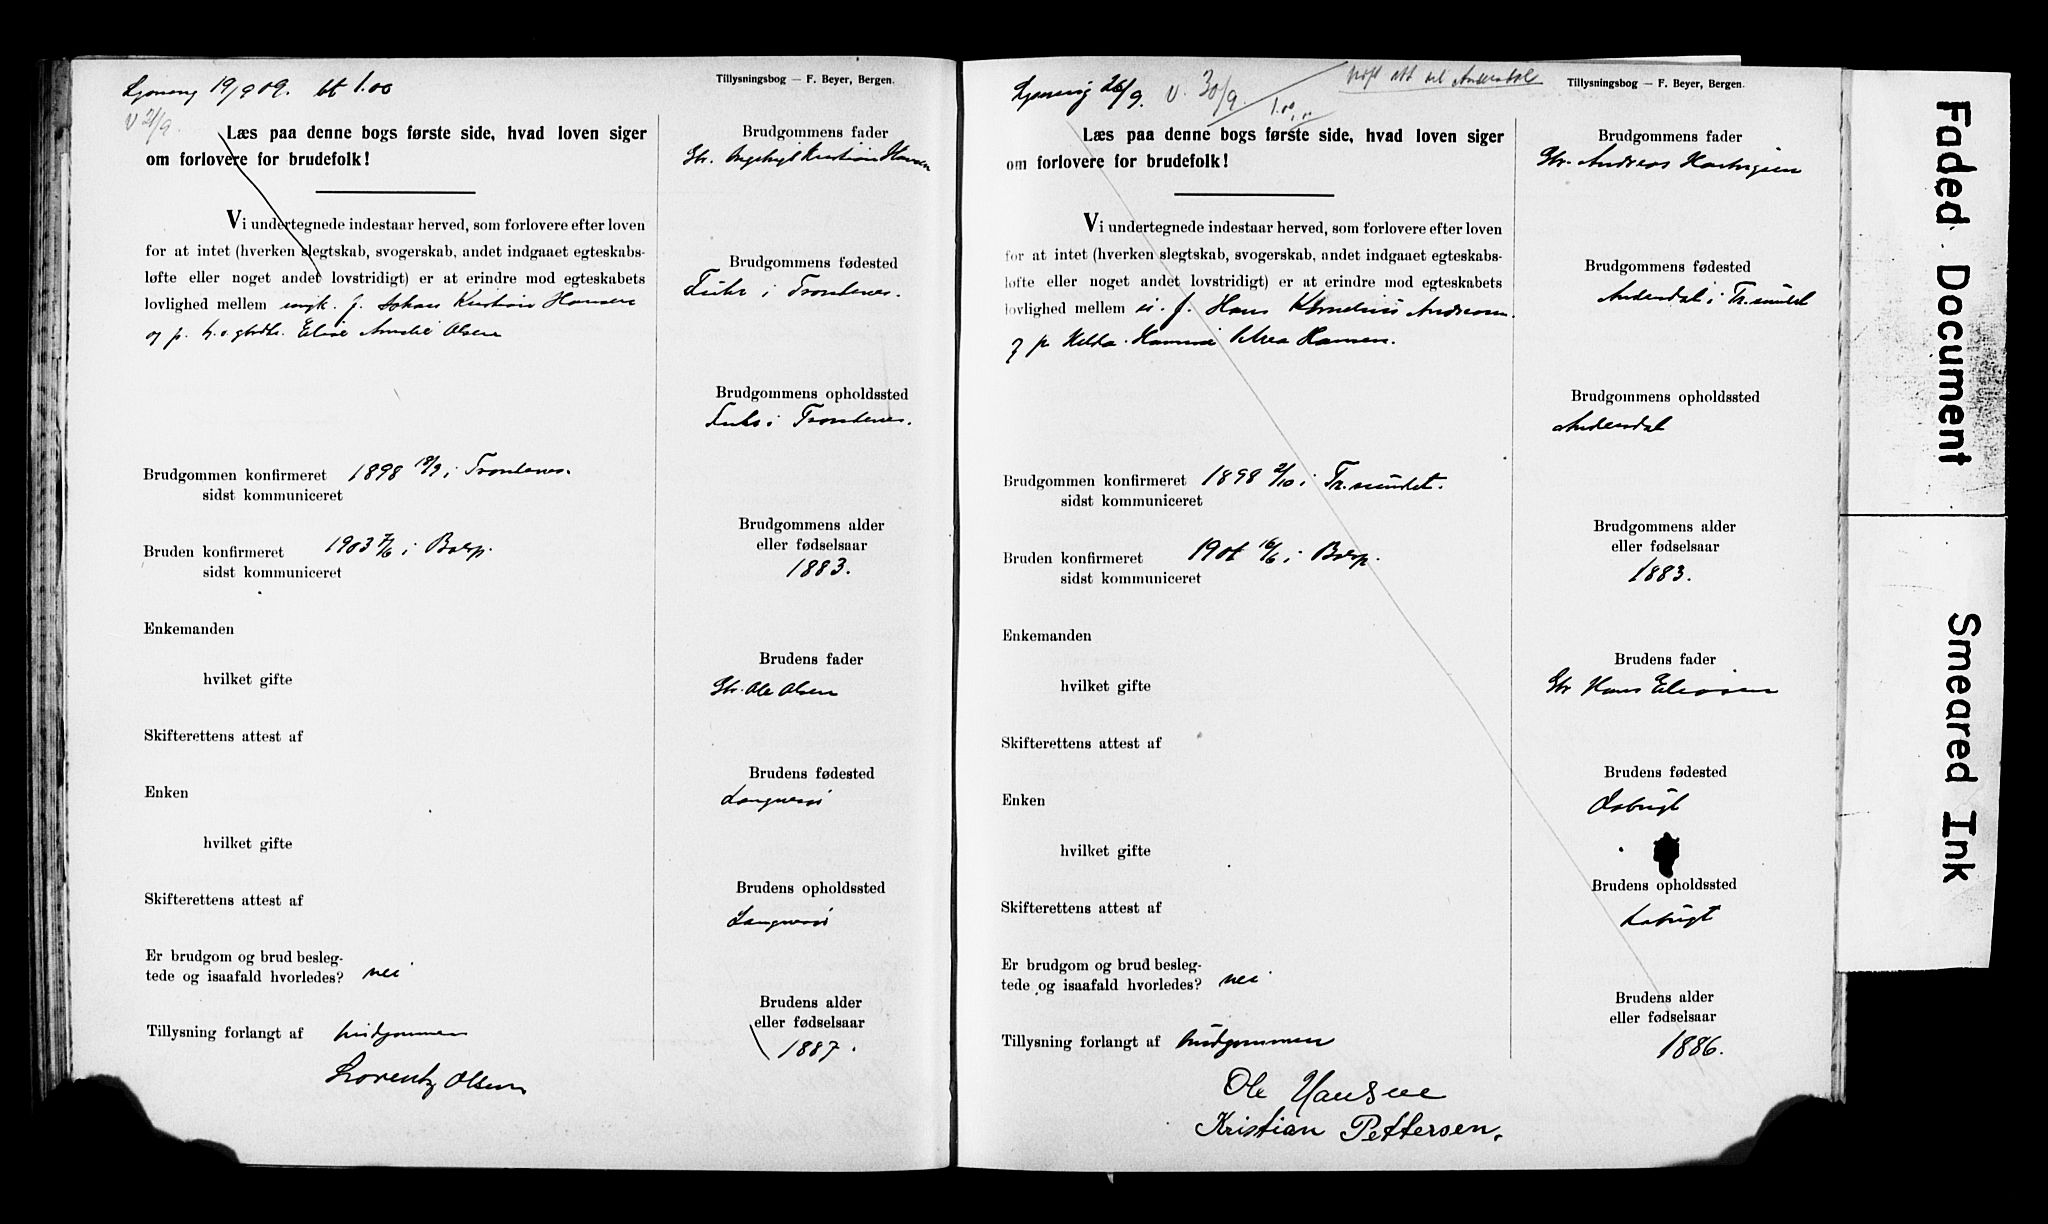 19/9 09. bt 1.00
v 21/9.
Tillysningsbog — F. Beyer, Bergen.
Læs paa denne bogs første side, hvad loven siger
om forlovere for brudefolk!
Vi undertegnede indestaar herved, som forlovere efter loven
for at intet (hverken slegtskab, svogerskab, andet indgaaet egteskabs-
løfte eller noget andet lovstridigt) er at erindre mod egteskabets
lovlighed mellem ungk. f. Johan Kristian Hansen
og p. Elise Amalie Olsen
Brudgommen konfirmeret 1898 i Trondenes.
sidst kommuniceret
Bruden konfirmeret 1903 7/6 i
sidst kommuniceret
Enkemanden
hvilket gifte
Skifterettens attest af
Enken
hvilket gifte
Skifterettens attest af
Er brudgom og brud besleg-
tede og isaafald hvorledes? nei
Tillysning forlangt af brudgommen
Lorentz Olsen
Brudgommens fader
Gbr. Kristian Hansen
Brudgommens fødested
i Trondenes.
Brudgommens opholdssted
i Trondenes.
Brudgommens alder
eller fødselsaar
1883.
Brudens fader
Gbr. Ole Olsen
Brudens fødested
Brudens opholdssted
Brudens alder
eller fødselsaar
1887.
26/9. v. 30/9. 1.00
Tillysningsbog — F. Beyer, Bergen.
Læs paa denne bogs første side, hvad loven siger
om forlovere for brudefolk!
Vi undertegnede indestaar herved, som forlovere efter loven
for at intet (hverken slegtskab, svogerskab, andet indgaaet egteskabs-
løfte eller noget andet lovstridigt) er at erindre mod egteskabets
lovlighed mellem f. Hans Kornelius Andreasen
og p. Hansen.
Brudgommen konfirmeret 1898 2/10 i Tr.sundet.
sidst kommuniceret
Bruden konfirmeret 16/6 i
sidst kommuniceret
Enkemanden
hvilket gifte
Skifterettens attest af
Enken
hvilket gifte
Skifterettens attest af
Er brudgom og brud besleg-
tede og isaafald hvorledes? nei
Tillysning forlangt af brudgommen
Ole Hansen
Kristian Pettersen.
Brudgommens fader
Gbr. Andreas
Brudgommens fødested
Andersdal i Tr.sundet
Brudgommens opholdssted
Andersdal
Brudgommens alder
eller fødselsaar
1883.
Brudens fader
Gbr Hans
Brudens fødested
Brudens opholdssted
Brudens alder
eller fødselsaar
1886.
Faded Document
Smeared Ink